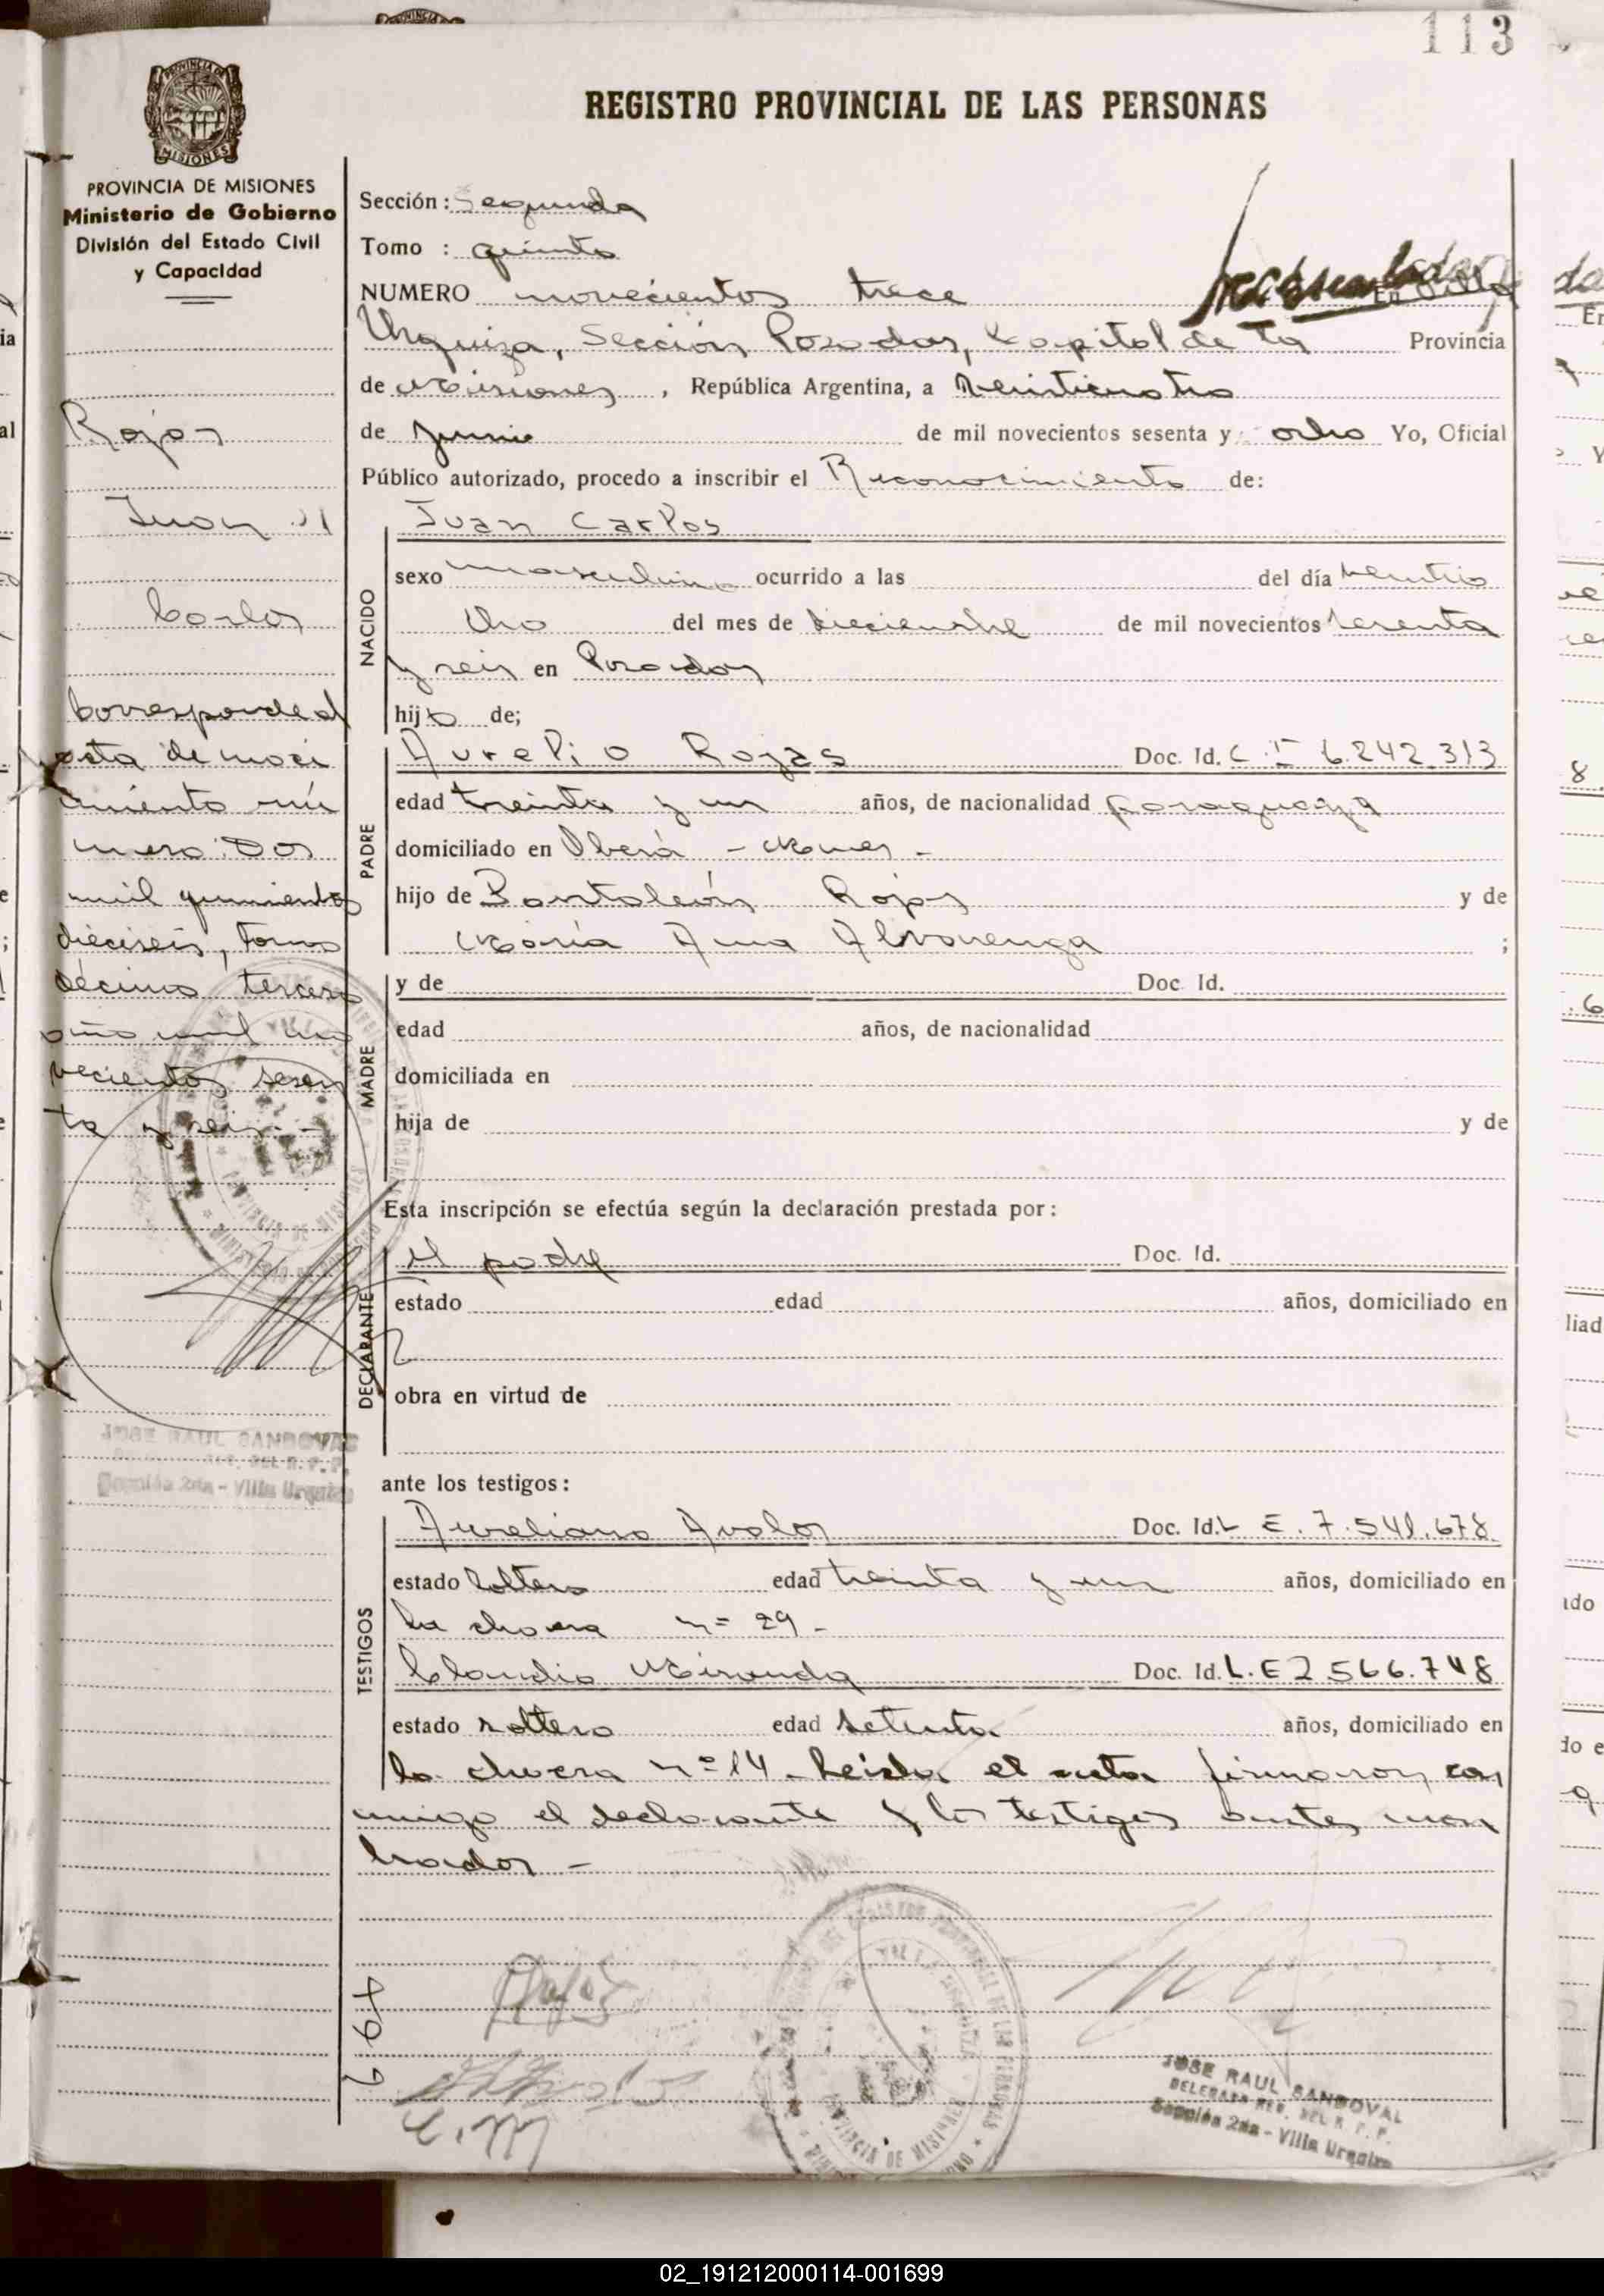 113
REGISTRO PROVINCIAL DE LAS PERSONAS
PROVINCIA DE MISIONES
Ministerio de Gobierno
División del Estado Civil
y Capacidad
Rojas
Juan
Carlos
Corresponde al
acta de naci
miento nú
mero: Dos
mil quinientos
dieciseis, tomo
décimo tercero
año mil no
vecientos sesen
ta y seis.-
JOSE RAUL SANDOVAL
DEL R. P. P.
Sección 2da - Villa Urquiza
Sección: Segunda
Tomo : quinto
NUMERO novecientos trece En Villa
Urquiza, Sección Posadas, Capital de la Provincia
de Misiones, República Argentina, a veinticuatro
de Junio de mil novecientos sesenta y ocho Yo, Oficial
Público autorizado, procedo a inscribir el Reconocimiento de:
NACIDO
Juan Carlos
sexo masculino ocurrido a las del día veintio
cho del mes de diciembre de mil novecientos sesenta
y seis en Posadas
hijo de;
PADRE
Aurelio Rojas Doc. Id. C. I 6.242.313
edad treinta y un años, de nacionalidad paraguaya
domiciliado en Oberá - Mnes -
hijo de Pantaleón Rojas y de
María Ana Alvarenga ;
MADRE
y de Doc. Id.
edad años, de nacionalidad
domiciliada en
hija de y de
Esta inscripción se efectúa según la declaración prestada por:
DECLARANTE
el padre Doc. Id.
estado edad años, domiciliado en
obra en virtud de
ante los testigos:
TESTIGOS
Aureliano Avalos Doc. Id. L E. 7.541.678
estado soltero edad treinta y un años, domiciliado en
la chacra nº 29-
Claudio Miranda Doc. Id. L.E 2.566.748
estado soltero edad setenta años, domiciliado en
la chacra nº 14- Leída el acta firmaron con
migo el declarante y los testigos antes nom
brados -
C. M
JOSE RAUL SANDOVAL
DELEGADO REG. DEL R. P. P.
Sección 2da - Villa Urquiza
02_191212000114-001699